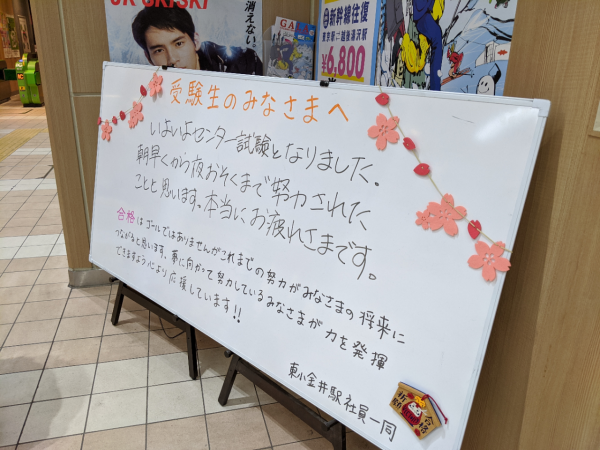 JR SKISKI
消えない。
GA
新幹線往復
東京駅⇔越後湯沢駅
¥6,800
受験生のみなさまへ
いよいよセンター試験となりました。
朝早くから夜おそくまで努力された
ことと思います。本当にお疲れさまです。
合格はゴールではありませんがこれまでの努力がみなさまの将来に
つながると思います。夢に向かって努力しているみなさまが力を発揮
できますよう心より応援しています!!
東小金井駅社員一同
合格